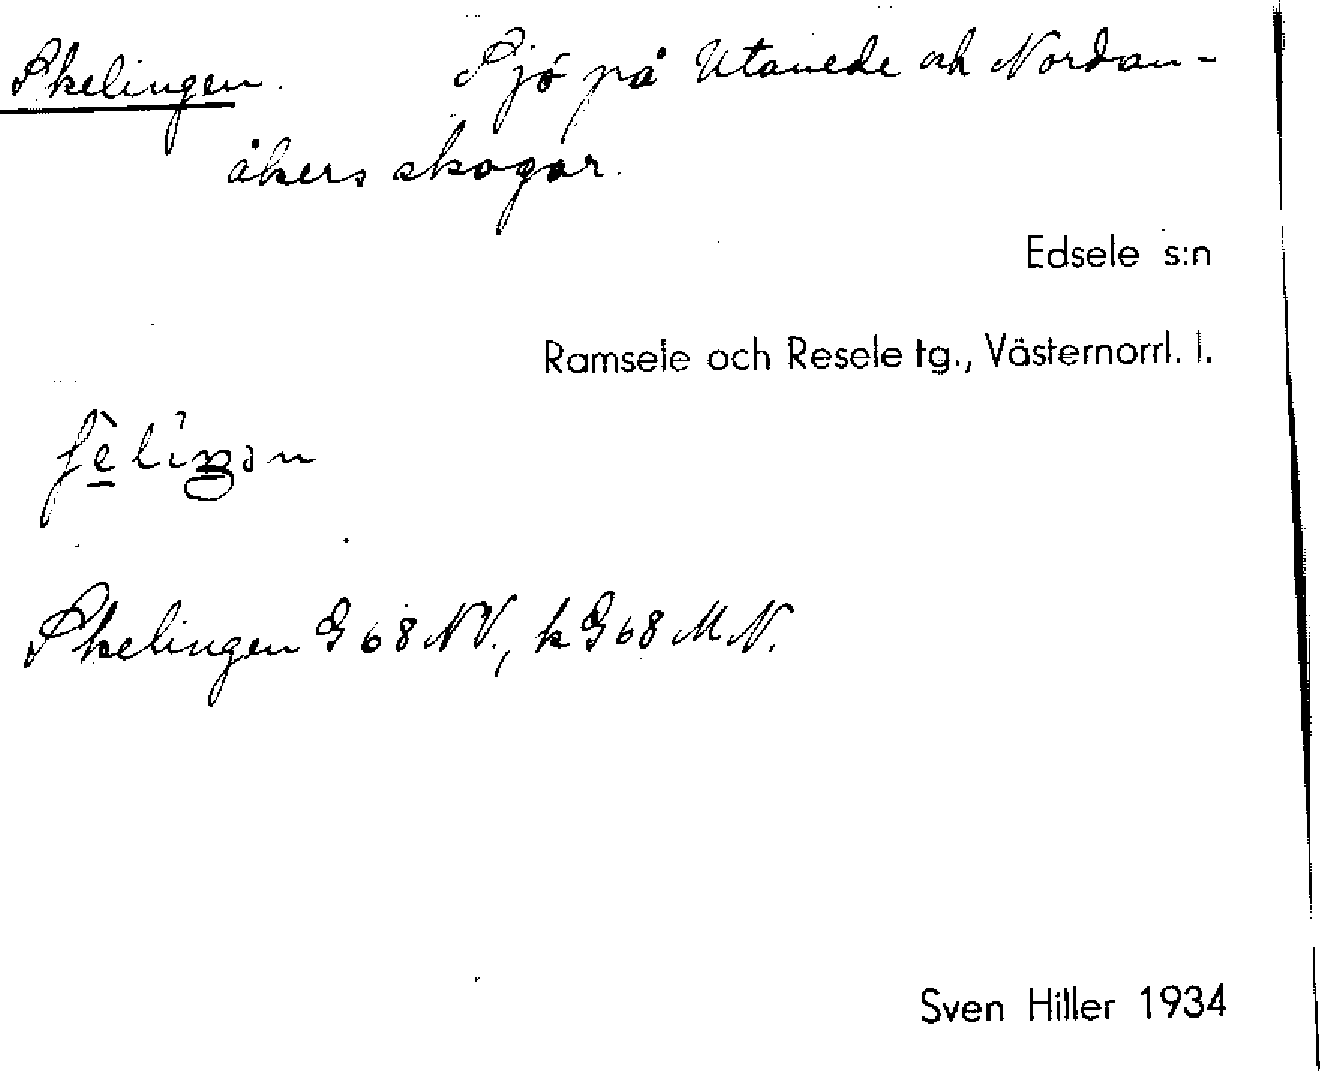 Skelingen. Sjö på Utanede och Nordan-
åkers skogar.
Edsele s:n
Ramsele och Resele tg., Västernorrl. l.
Skelingen G 68 NV., k G 68 M.N.
Sven Hiller 1934